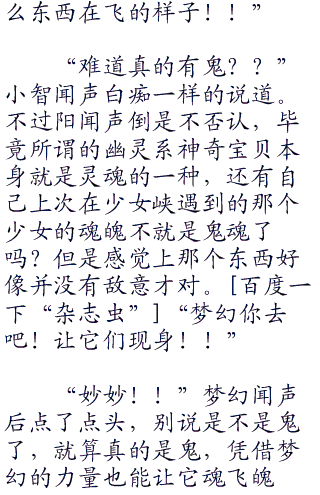 么东西在飞的样子！！”
“难道真的有鬼？？”
小智闻声白痴一样的说道。
不过阳闻声倒是不否认，毕
竟所谓的幽灵系神奇宝贝本
身就是灵魂的一种，还有自
己上次在少女峡遇到的那个
少女的魂魄不就是鬼魂了
吗？但是感觉上那个东西好
像并没有敌意才对。[百度一
下“杂志虫”]“梦幻你去
吧！让它们现身！！”
“妙妙！！”梦幻闻声
后点了点头，别说是不是鬼
了，就算真的是鬼，凭借梦
幻的力量也能让它魂飞魄